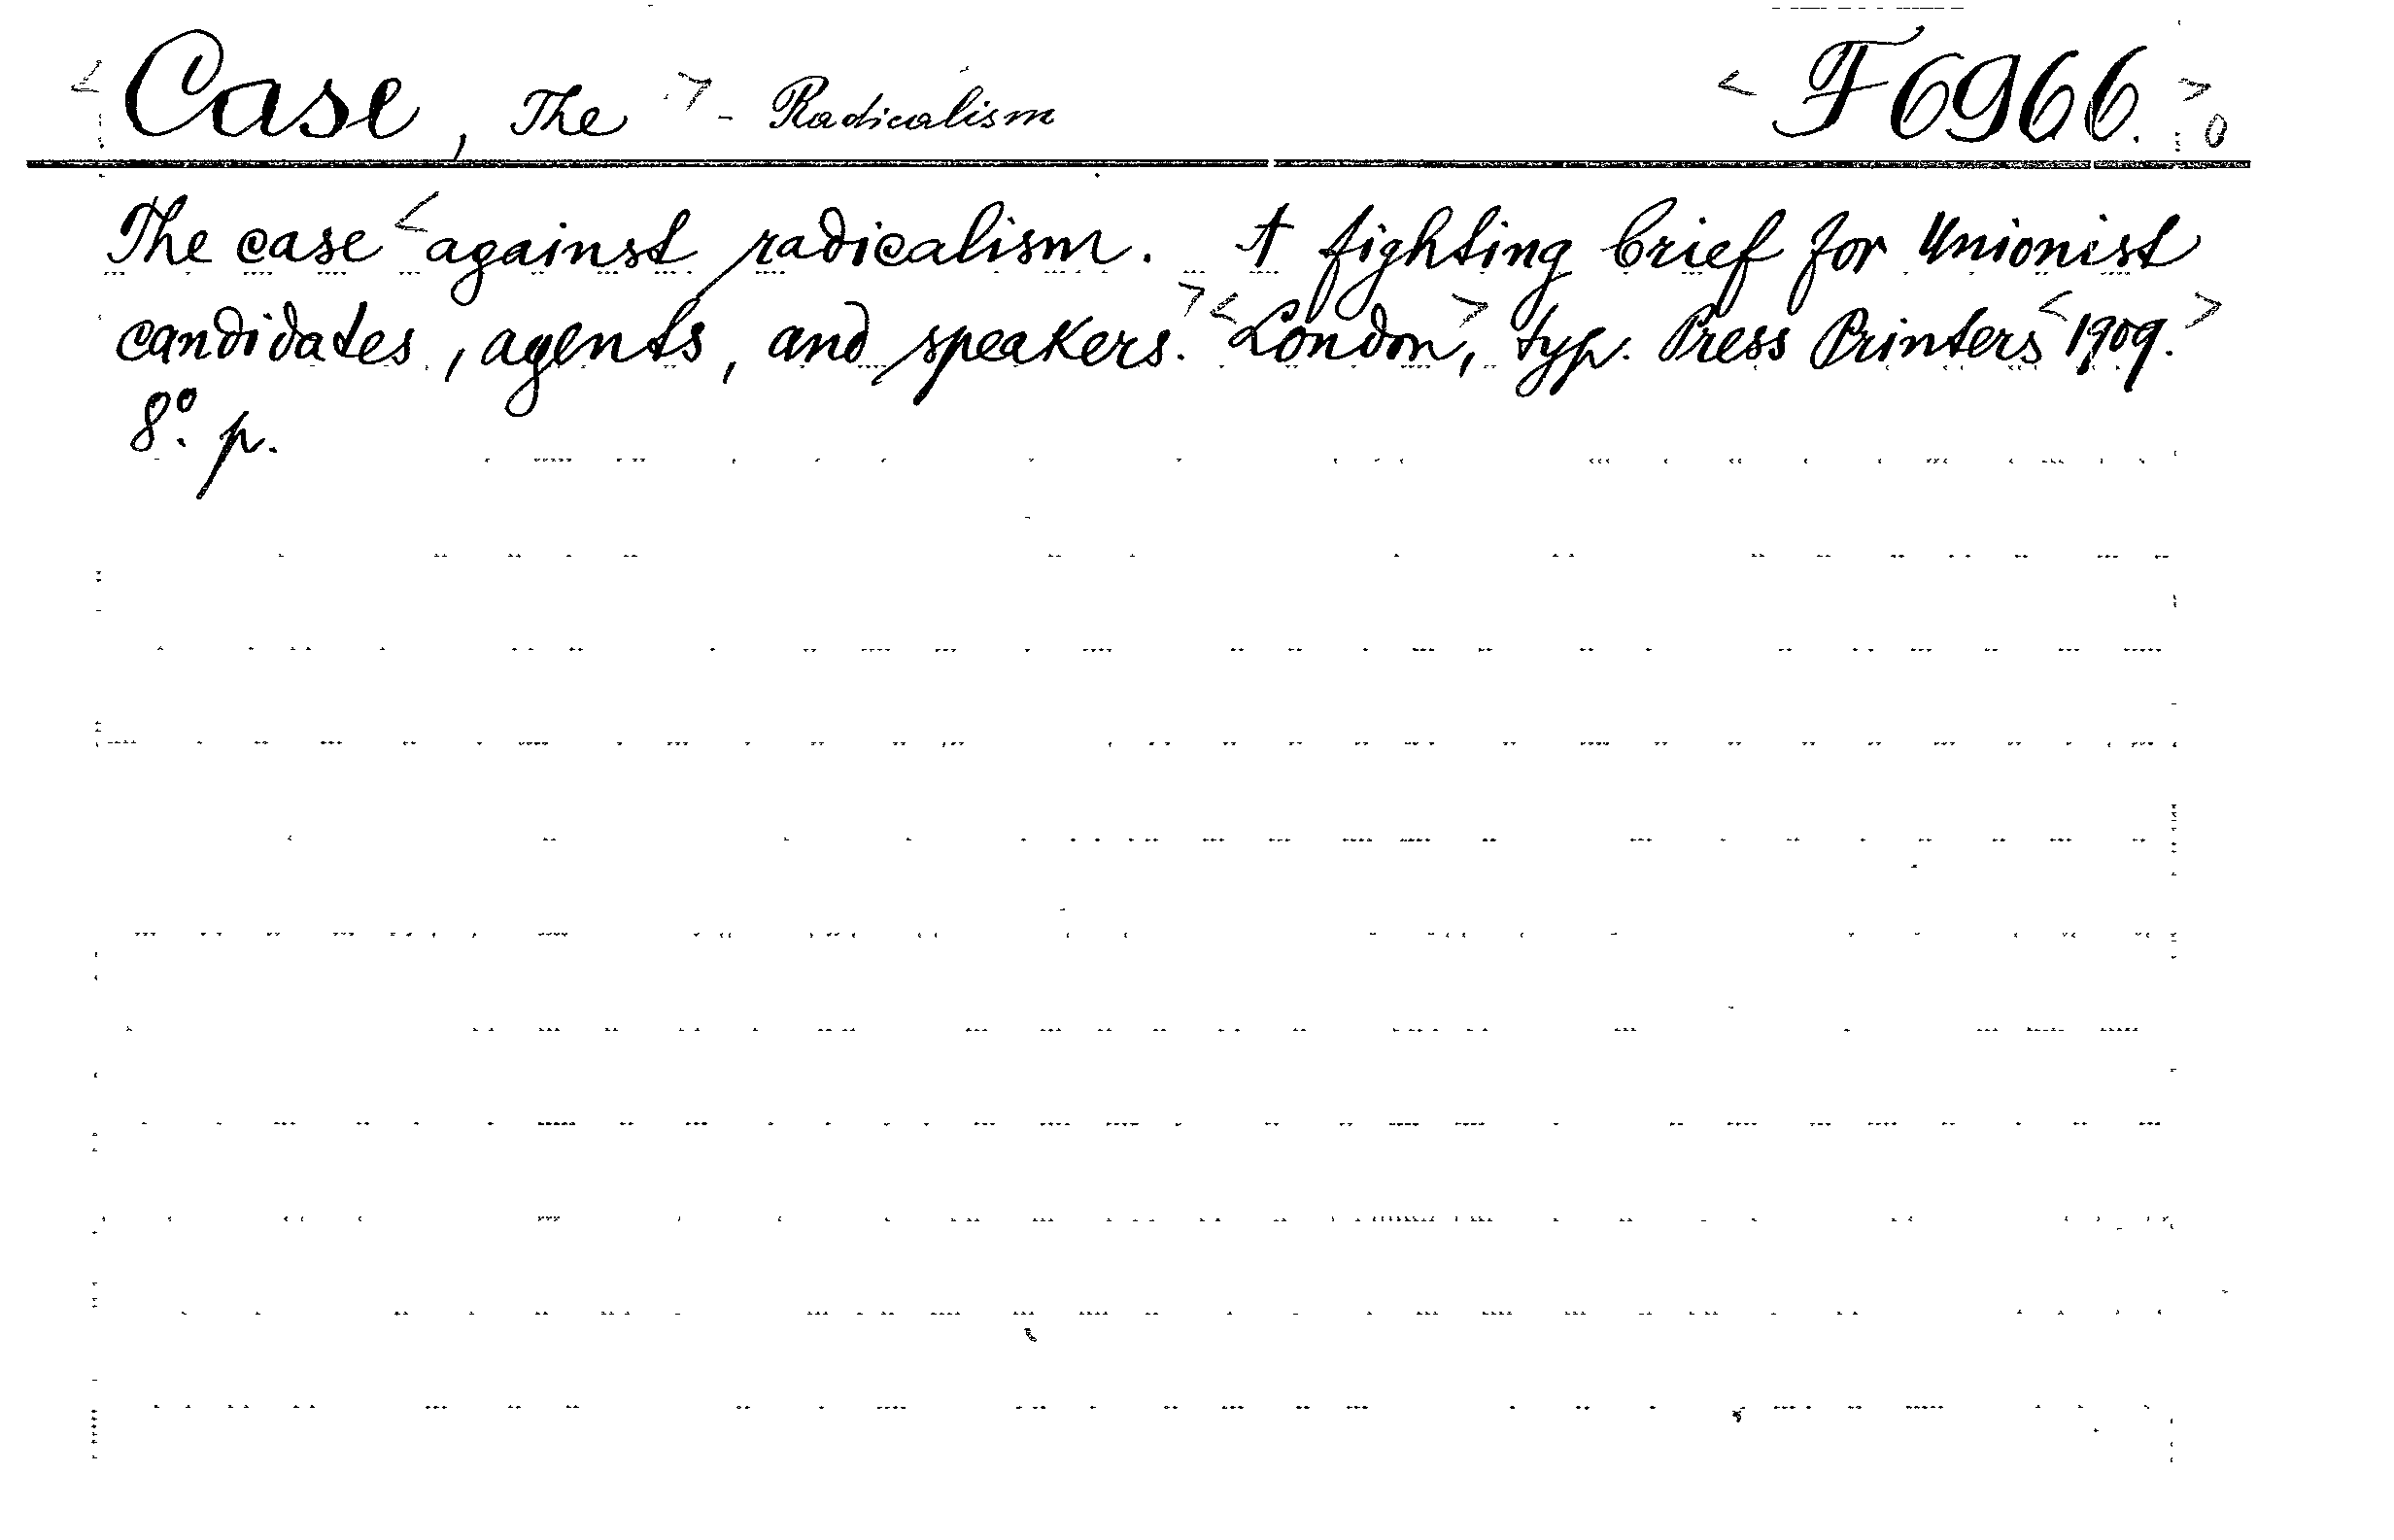 < Case, The > - Radicalism < F6966. > 0
The case < against radicalism. A fighting brief for Unionist
candidates, agents, and speakers. > < London, > typ. Press Printers < 1909. >
8º. p.